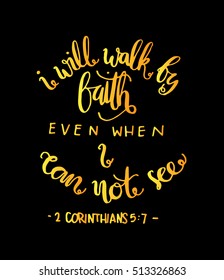 i will walk by
faith
EVEN WHEN
i
can not see
- 2 CORINTHIANS 5:7 -
shutterstock.com · 513326863